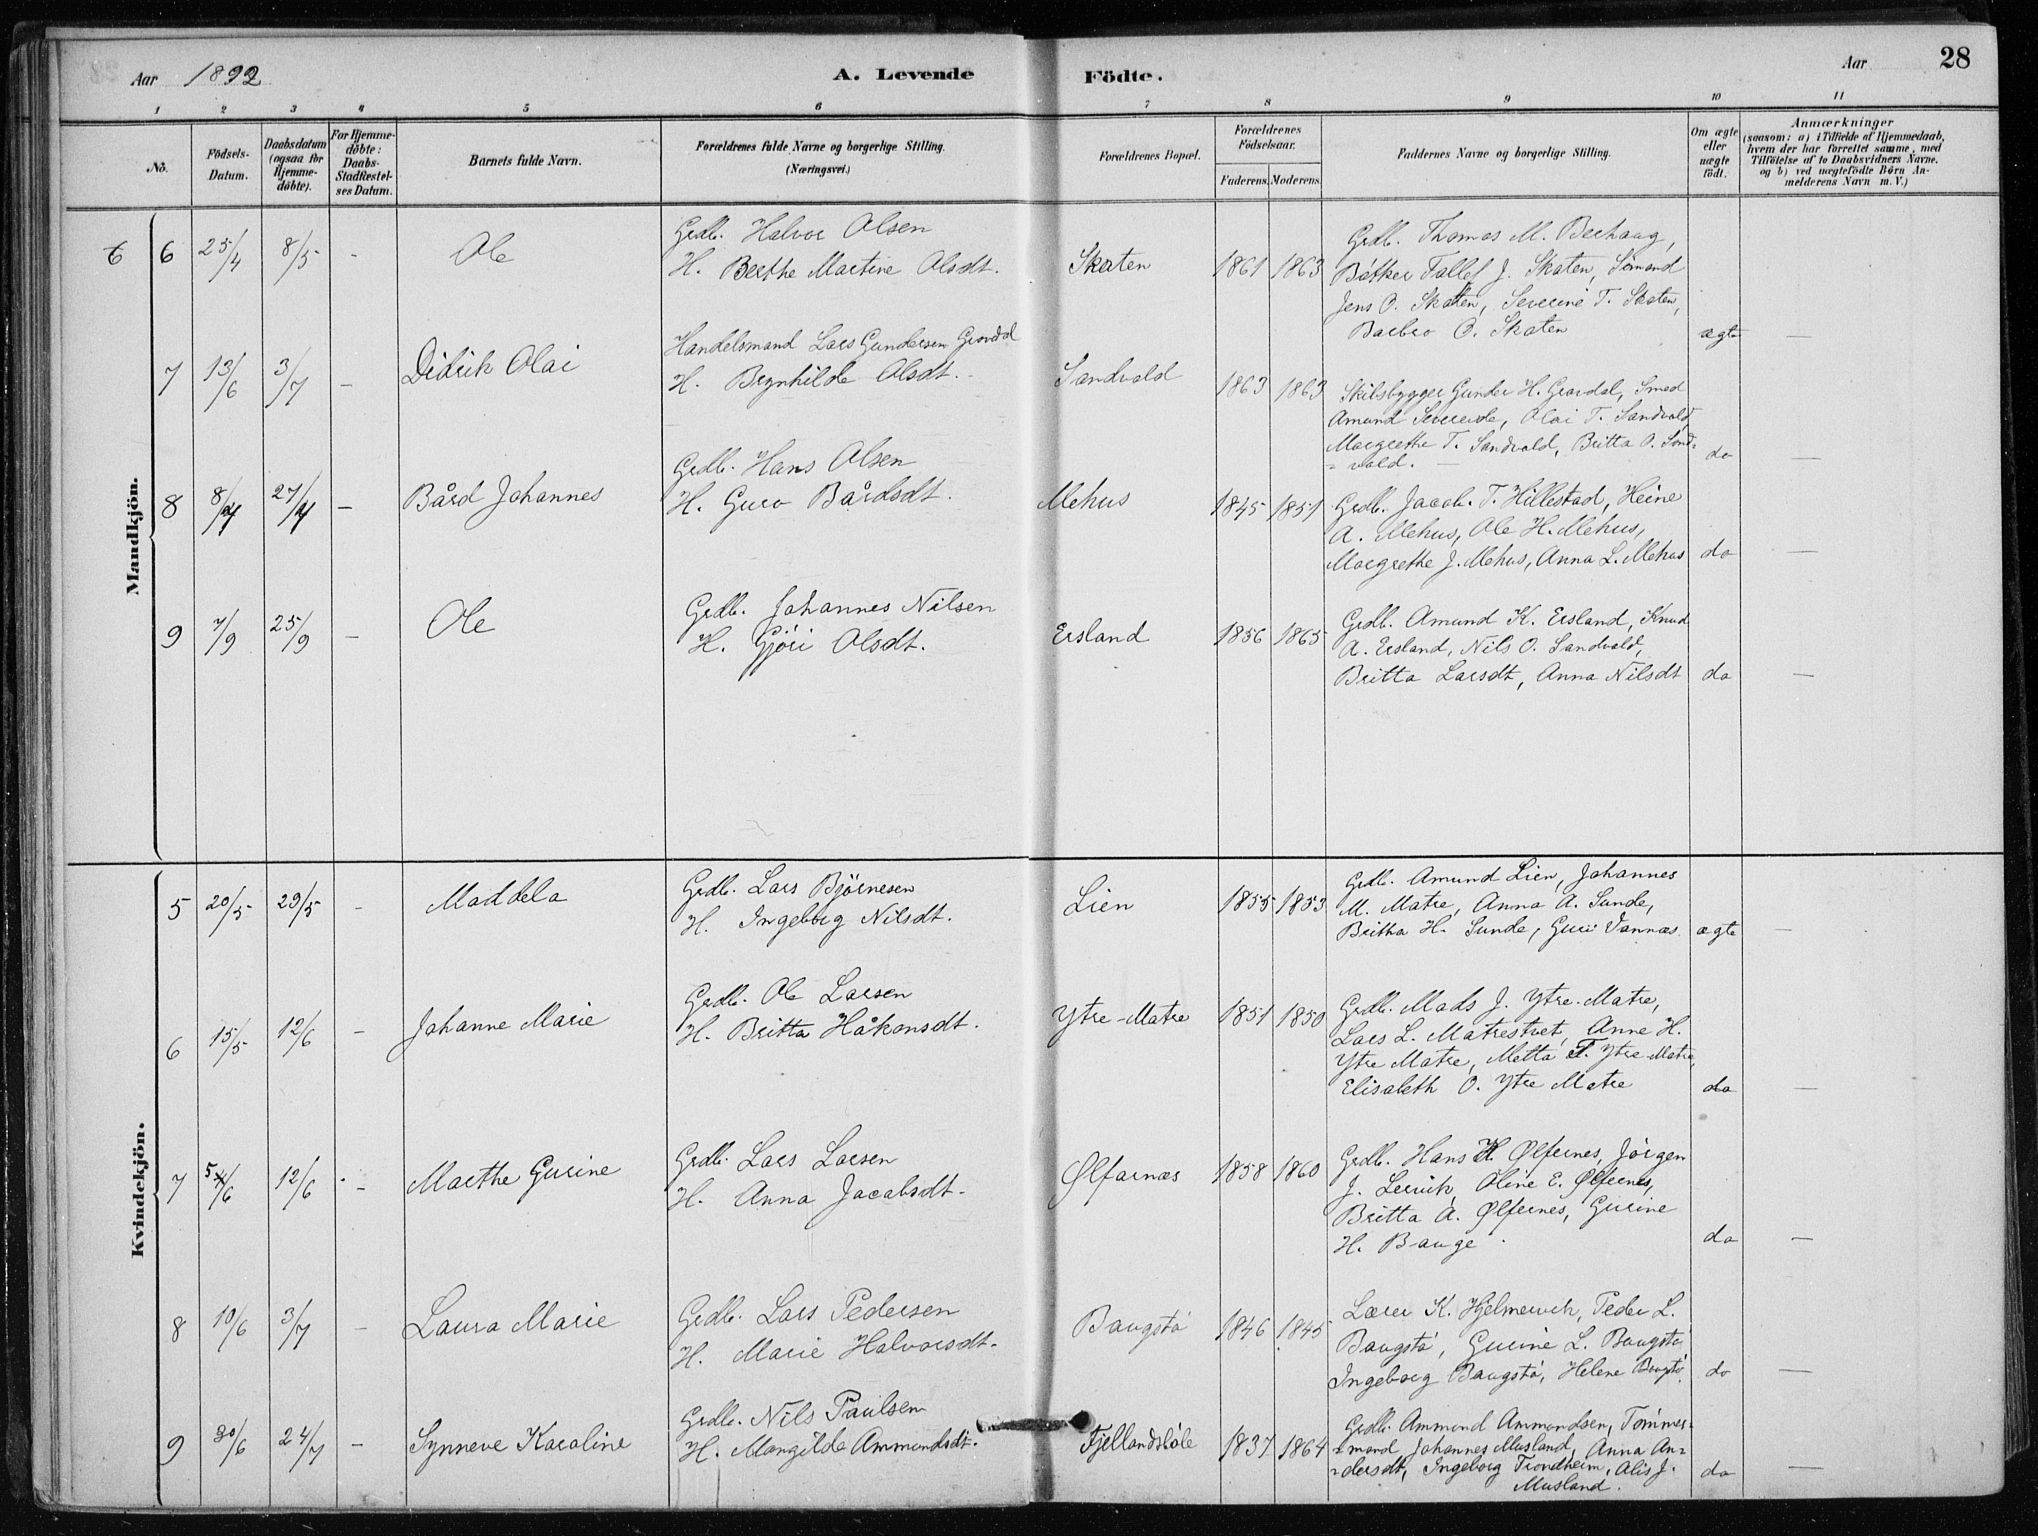 Aar 1892
A. Levende Födte.
Aar
28
1 2 3 4 5 6 7 8 9 10 11
No.
Födsels-
Datum.
Daabsdatum
(ogsaa for
Hjemme-
döbte).
For Hjemme-
döbte:
Daabs-
Stadfæstel-
ses Datum.
Barnets fulde Navn.
Forældrenes fulde Navne og borgerlige Stilling.
(Næringsvei.)
Forældrenes Bopæl.
Forældrenes
Födselsaar.
Faderens. Moderens.
Faddernes Navne og borgerlige Stilling.
Om ægte
eller
uægte
födt.
Anmærkninger
(saasom: a) i Tilfælde af Hjemmedaab,
hvem der har forrettet samme, med
Tilföielse af to Daabsvidners Navne.
og b) ved uægtefödte Börn An-
melderens Navn m. V.)
Mandkjön.
6 25/4 8/5 - Ole
Grdb. Halvor Olsen
H. Berthe Martine Olsdt.
Skaten 1861 1863
Grdb. Thomas M. Berhaug,
Bøtker Tallef J. Skaten, Sømand
Jens O. Skaten, Severine T. Skaten,
Barbro O. Skaten
ægte —
7 13/6 3/7 - Didrik Olai
Handelsmand Lars Gundersen Grovdal
H. Brynhilde Olsdt.
Sandvold 1863 1863
Skibsbygger Gunder H. Grovdal, Smed
Amund Severeide, Olai T. Sandvold,
Margrethe T. Sandvold, Britta O. Sand-
=vold. —
do —
8 8/7 27/7 - Bård Johannes
Grdb. Hans Olsen
H. Guro Bårdsdt.
Mehus 1845 1851
Grdb. Jacob T. Hillestad, Heine
A. Mehus, Ole H. Mehus,
Margrethe J. Mehus, Anna L. Mehus
do —
9 7/9 25/9 - Ole
Grdb. Johannes Nilsen
H. Gjøri Olsdt.
Ersland 1856 1865
Grdb. Amund K. Ersland, Knud
A. Ersland, Nils O. Sandvold,
Britta Larsdt, Anna Nilsdt
do —
Kvindekjön.
5 20/5 29/5 - Maddela
Grdb. Lars Bjørnesen
H. Ingeborg Nilsdt.
Lien 1855 1853
Grdb. Amund Lien, Johannes
M. Matre, Anna A. Sunde,
Britha H. Sunde, Guri Vannæs
ægte —
6 15/5 12/6 - Johanne Marie
Grdb. Ole Larsen
H. Britta Håkonsdt.
Ytre-Matre 1851 1850
Grdb. Mads J. Ytre-Matre,
Lars L. Matrestvet, Anne H.
Ytre Matre, Metta T. Ytre Matre,
Elisabeth O. Ytre Matre
do —
7 5/6 12/6 - Marthe Gurine
Grdb. Lars Larsen
H. Anna Jacobsdt.
Ølfarnæs 1858 1860
Grdb. Hans H. Ølfernes, Jørgen
J. Lervik, Oline E. Ølfernes,
Britta A. Ølfernes, Gurine
H. Bauge.
do —
8 10/6 3/7 - Laura Marie
Grdb. Lars Pedersen
H. Marie Halvorsdt.
Baugstø 1846 1845
Lærer K. Hjelmervik, Peder L.
Baugstø, Gurine L. Baugstø,
Ingeborg Baugstø, Helene Baugstø.
do —
9 30/6 24/7 - Synneve Karoline
Grdb. Nils Paulsen
H. Mangilde Ammundsdt.
Fjellandsbøle 1837 1864
Grdb. Ammund Ammundsen, Tømmer=
=mand Johannes Musland, Anna An=
=dersdt, Ingeborg Trondheim, Alis J.
Musland.
do —